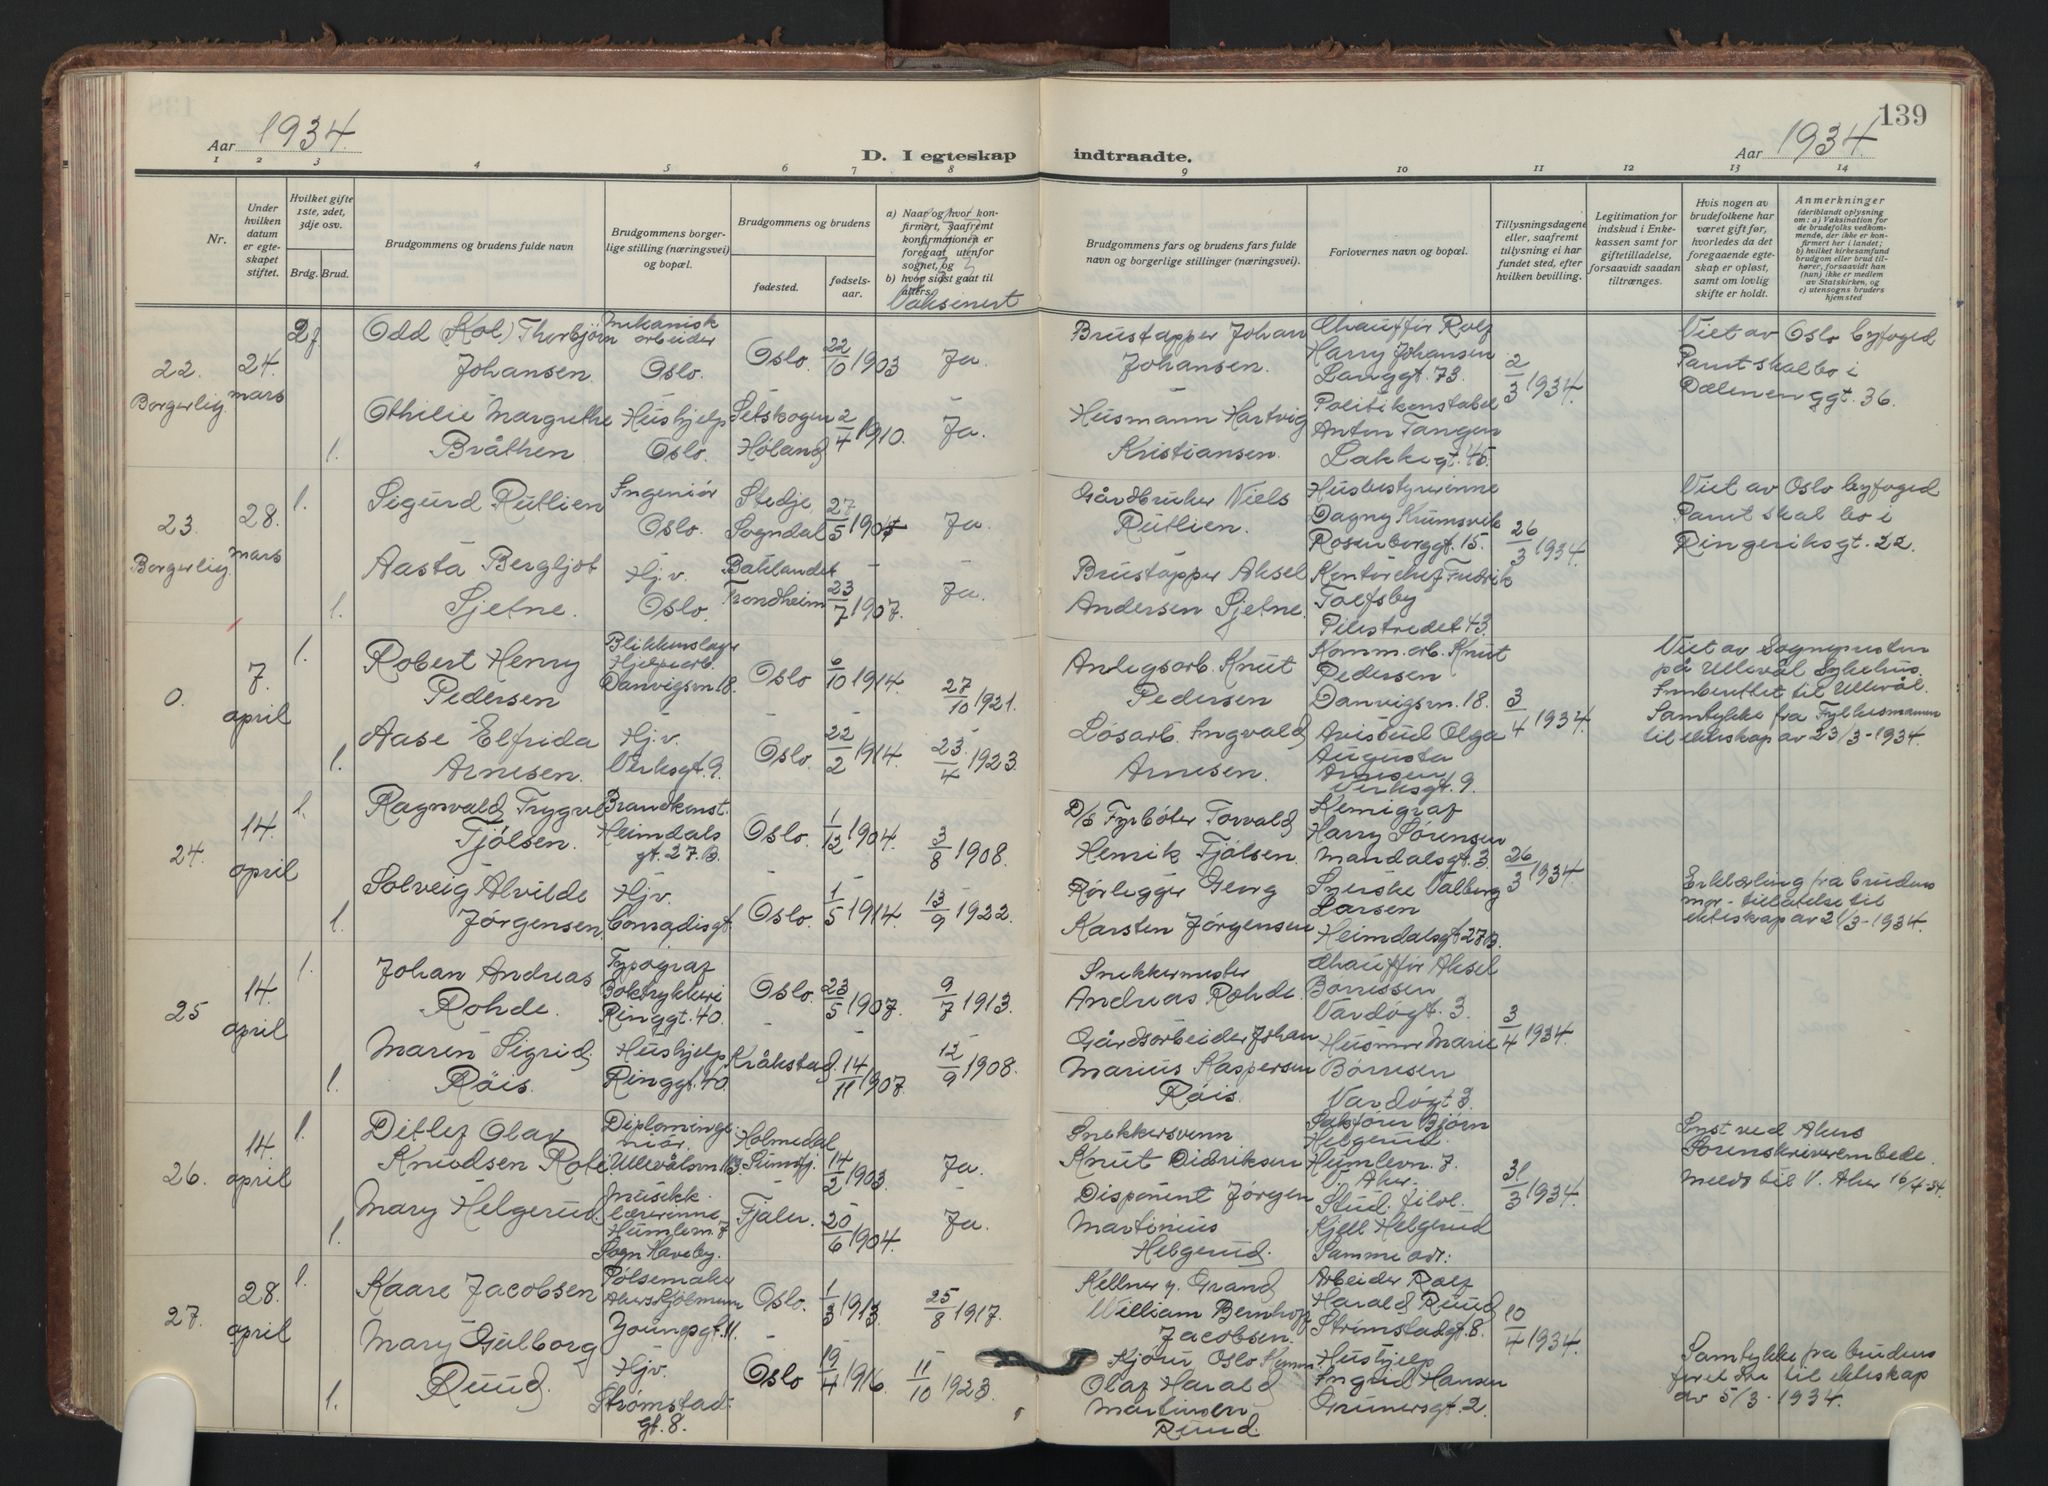 139
Aar 1934.
D. I egteskap indtraadte.
Aar 1934.
1 2 3 4 5 6 7 8 9 10 11 12 13 14
Nr.
Under hvilken datum er egteskapet stiftet.
Hvilket gifte 1ste, 2det, 3dje osv.
Brdg. Brud.
Brudgommens og brudens fulde navn
Brudgommens borgerlige stilling (næringsvei) og bopæl.
Brudgommens og brudens
fødested.
fødselsaar.
a) Naar og hvor konfirmert, saafremt konfirmationen er foregaat utenfor sognet, og
b) hvor sidst gaat til alters.
Vaksinert
Brudgommens fars og brudens fars fulde navn og borgerlige stillinger (næringsvei).
Forlovernes navn og bopæl.
Tillysningsdagene eller, saafremt tillysning ei har fundet sted, efter hvilken bevilling.
Legitimation for indskud i Enkekassen samt for giftetilladelse, forsaavidt saadan tiltrænges.
Hvis nogen av brudefolkene har været gift før, hvorledes da det foregaaende egteskap er opløst, samt om lovlig skifte er holdt.
Anmerkninger
(deriblandt oplysning om: a) Vaksination for de brudefolks vedkommende, der ikke er konfirmert her i landet; b) hvilket kirkesamfund brudgom eller brud tilhører, forsaavidt han (hun) ikke er medlem av Statskirken, og c) utensogns bruders hjemsted
22. Borgerlig
24. mars
2 f
Odd (Kol) Thorbjørn
Johansen.
mekanisk
arbeider
Oslo.
Oslo.
22/10 1903
Ja.
Brustapper Johan
Johansen.
Chauffør Rolf
Harry Johansen
Langgt. 73.
2/3 1934.
Viet av Oslo byfoged
Pamt skal bo i
Dælenenggt. 36.
1.
Othilie Margrethe
Bråthen.
Hushjelp
Oslo.
Setskogen
Høland
2/4 1910.
Ja.
Husmann Hartvig
Kristiansen.
Politikonstabel
Anton Tangen
Lakkegt. 45.
23. Borgerlig
28. mars
1.
Sigurd Rutlien
Ingeniør
Oslo.
Stedje
Sogndal
27/5 1907
Ja.
Gårdbruker Niels
Rutlien.
Husbestyrerinne
Dagny Krumsvik
Rosenborggt. 15.
26/3 1934.
Viet av Oslo byfoged
Pamt skal bo i
Ringeriksgt. 22.
1.
Aasta Bergljot
Sjetne.
Hj. v.
Oslo.
Baklandet
Trondheim
23/7 1907.
Ja.
Brustapper Aksel
Andersen Sjetne.
Kontorchef Fredrik
Toefsby
Pilestredet 43.
0.
7. april
1.
Robert Henry
Pedersen
Blikkenslager
Hjelpearb.
Danvigsvn. 18.
Oslo.
6/10 1914.
27/10 1921.
Anlegsarb. Knut
Pedersen
Komm. arb. Knut
Pedersen
Danvigsvn. 18.
3/4 1934.
Viet av Sognepresten
på Ullevål Sykehus.
Innberettet til Ullevål.
Samtykke fra Fylkesmannen
til ekteskap av 23/3-1934.
1.
Aase Elfrida
Arnesen.
Hj. v.
Verksgt. 9.
Oslo.
22/2 1914.
23/4 1923.
Løsarb. Ingvald
Arnesen.
Avisbud Olga
Augusta
Arnesen
Verksgt. 9.
24.
14. april
1.
Ragnvald Trygve
Tjølsen.
Brandkonst.
Heimdals
gt. 27 B.
Oslo.
1/12 1904.
3/8 1908.
D/S Fyrbøter Torvald
Henrik Tjølsen.
Kemigraf
Harry Sørensen
Mandalsgt. 3.
26/3 1934.
1.
Solveig Alvilde
Jørgensen.
Hjv.
Conradisgt.
Oslo.
1/5 1914.
13/9 1922.
Rørlegger Georg
Karsten Jørgensen
Sverske Valborg
Larsen
Heimdalsgt 27 B.
Erklæring fra brudens
mor - tillatelse til
ekteskap av 21/3-1934.
25
14. april
1.
Johan Andreas
Rohde.
Typograf
Boktrykkeri
Ringgt. 40.
Oslo.
23/5 1907.
9/7 1913.
Snekkermester
Andreas Rohde.
Chauffør Aksel
Børresen
Vardøgt. 3.
3/4 1934.
1.
Maren Sigrid
Röis.
Hushjelp
Ringgt. 40.
Kråkstad
14/11 1907.
12/9 1908.
Gårdsarbeider Johan
Marius Kaspersen
Röis.
Husmor Marie
Børresen
Vardøgt 3.
26.
14. april
1.
Ditlef Olav
Knudsen Rote
Diplominge-
niør.
Ullevålsvn. 113
Holmedal
Sunnfj.
14/2 1903.
Ja.
Snekkersvenn
Knut Didriksen
Sakfører Bjørn
Helgerud.
Humlevn. 7.
V. Aker.
31/3 1934.
Innst ved Akers
Sorenskriverembede.
Meldt til V. Aker 16/4-34.
1.
Mary Helgerud.
Musikk-
lærerinne
Humlevn. 7
Sogn Haveby.
Fjaler.
20/6 1904.
Ja.
Disponent Jørgen
Martinius
Helgerud.
Stud. filol.
Kjell Helgerud
Samme adr:
27.
28. april
1.
Kaare Jacobsen
Pølsemaker
Youngsgt. 11.
Oslo.
1/3 1913.
25/8 1917.
Kellner v. Grand
William Bernhoff
Jacobsen.
Arbeider Rolf
Harald Ruud
Strømstadgt. 8.
10/4 1934.
1.
Mary Gulborg
Ruud.
Hjv.
Strømstad-
gt. 8.
Oslo
19/4 1916.
11/10 1923.
Kjører Oslo Komm.
Olaf Harald
Martinsen
Ruud.
Hushjelp
Ingrid Hansen
Grünersgt. 2.
Samtykke fra brudens
foreldre til ekteskap
av 5/3-1934.